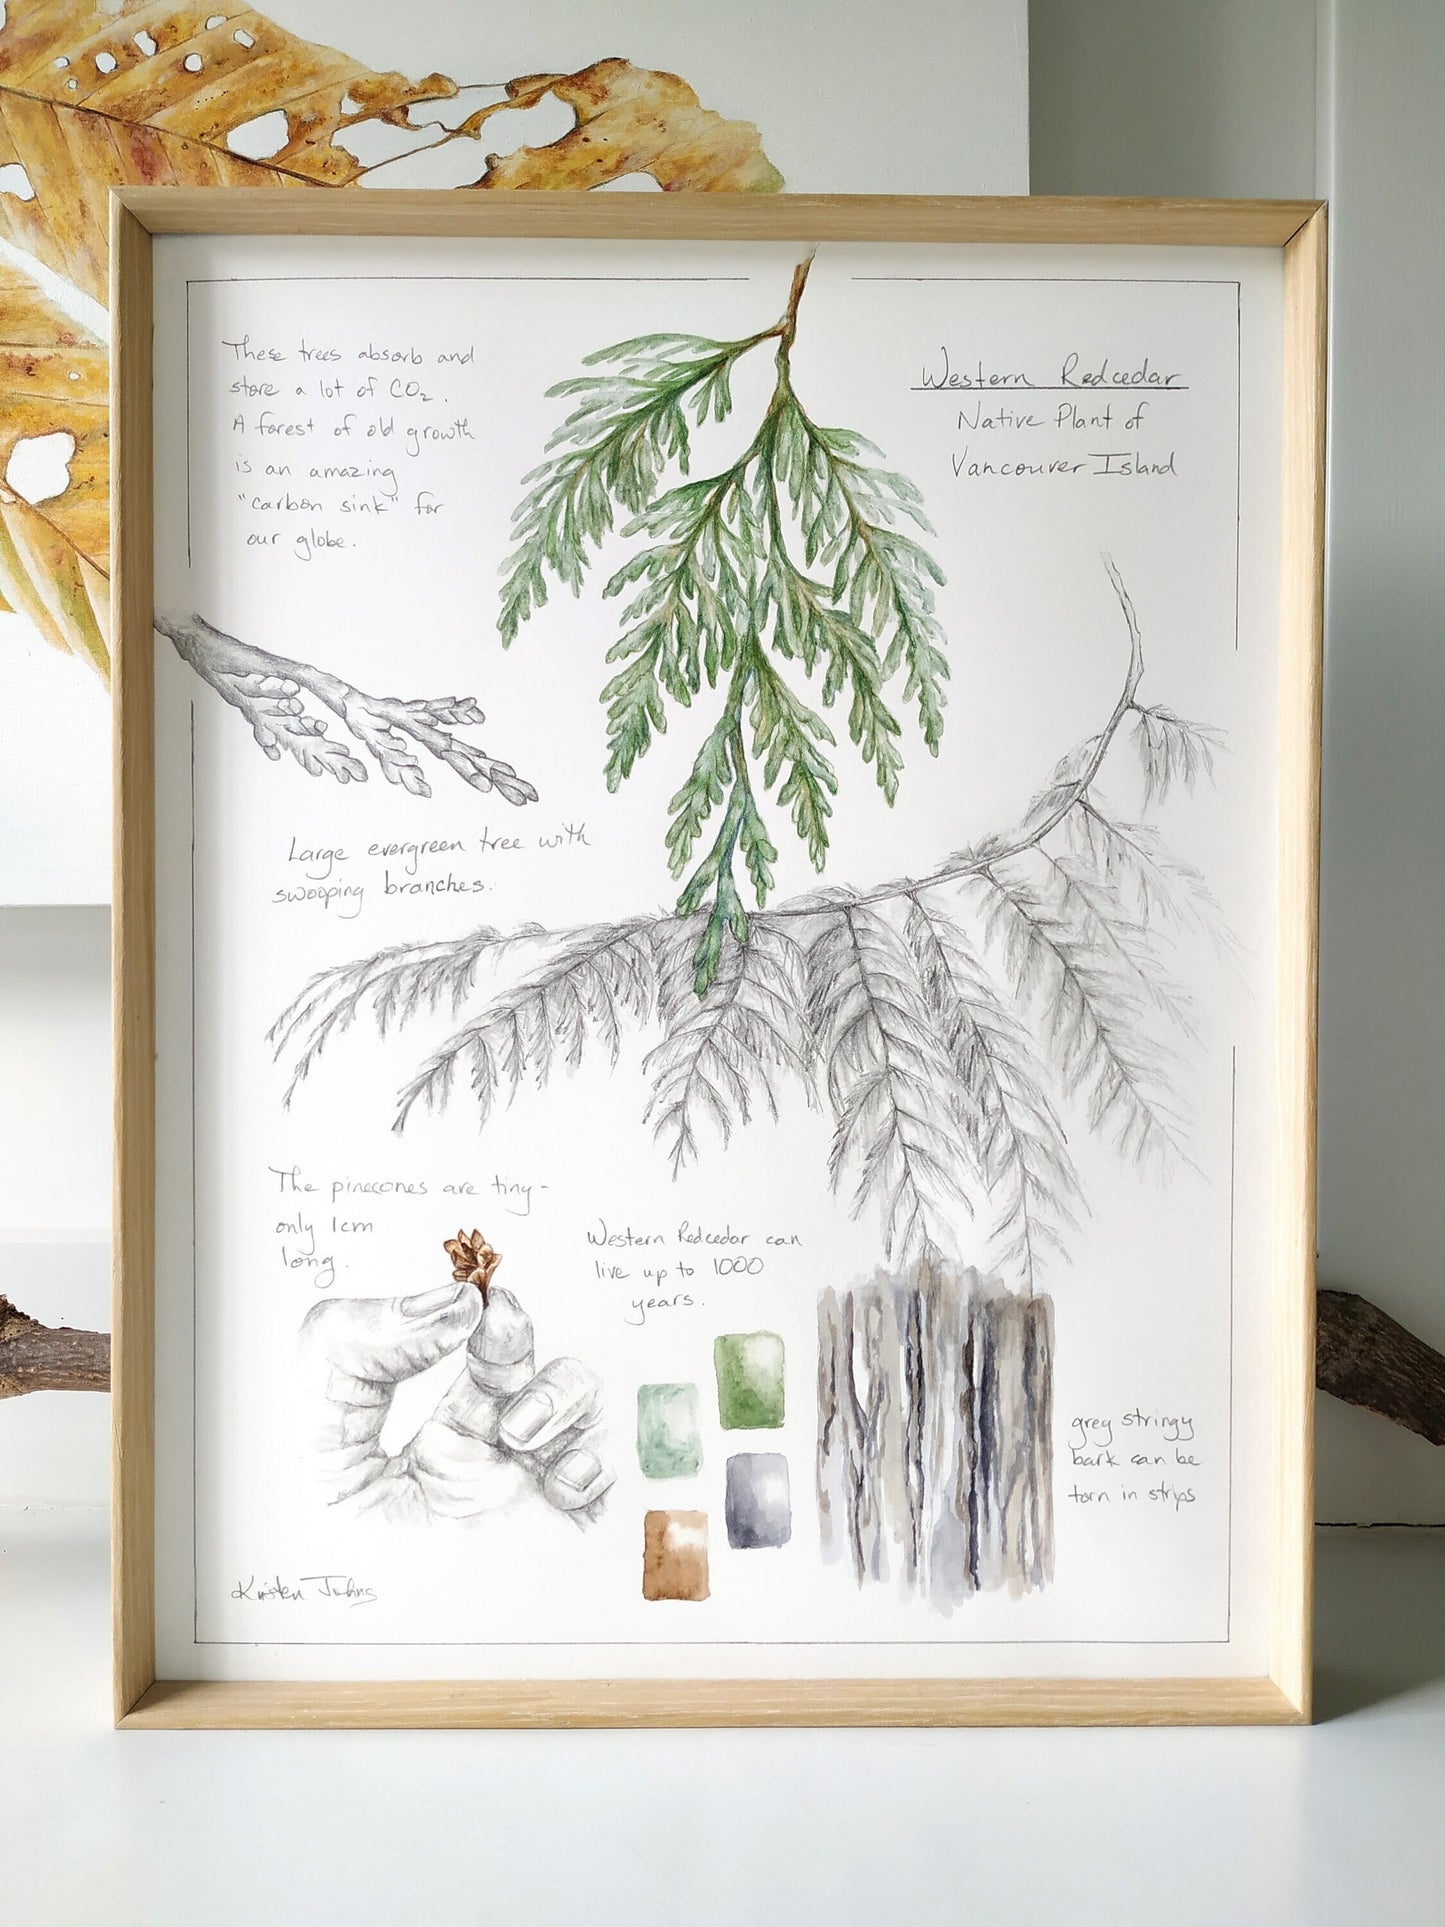 These trees absorb and
store a lot of CO₂.
A forest of old growth
is an amazing
"carbon sink" for
our globe.
Western Redcedar
Native Plant of
Vancouver Island
Large evergreen tree with
swooping branches.
The pinecones are tiny -
only 1cm
long.
Western Redcedar can
live up to 1000
years.
grey stringy
bark can be
torn in strips
Kristen Johns